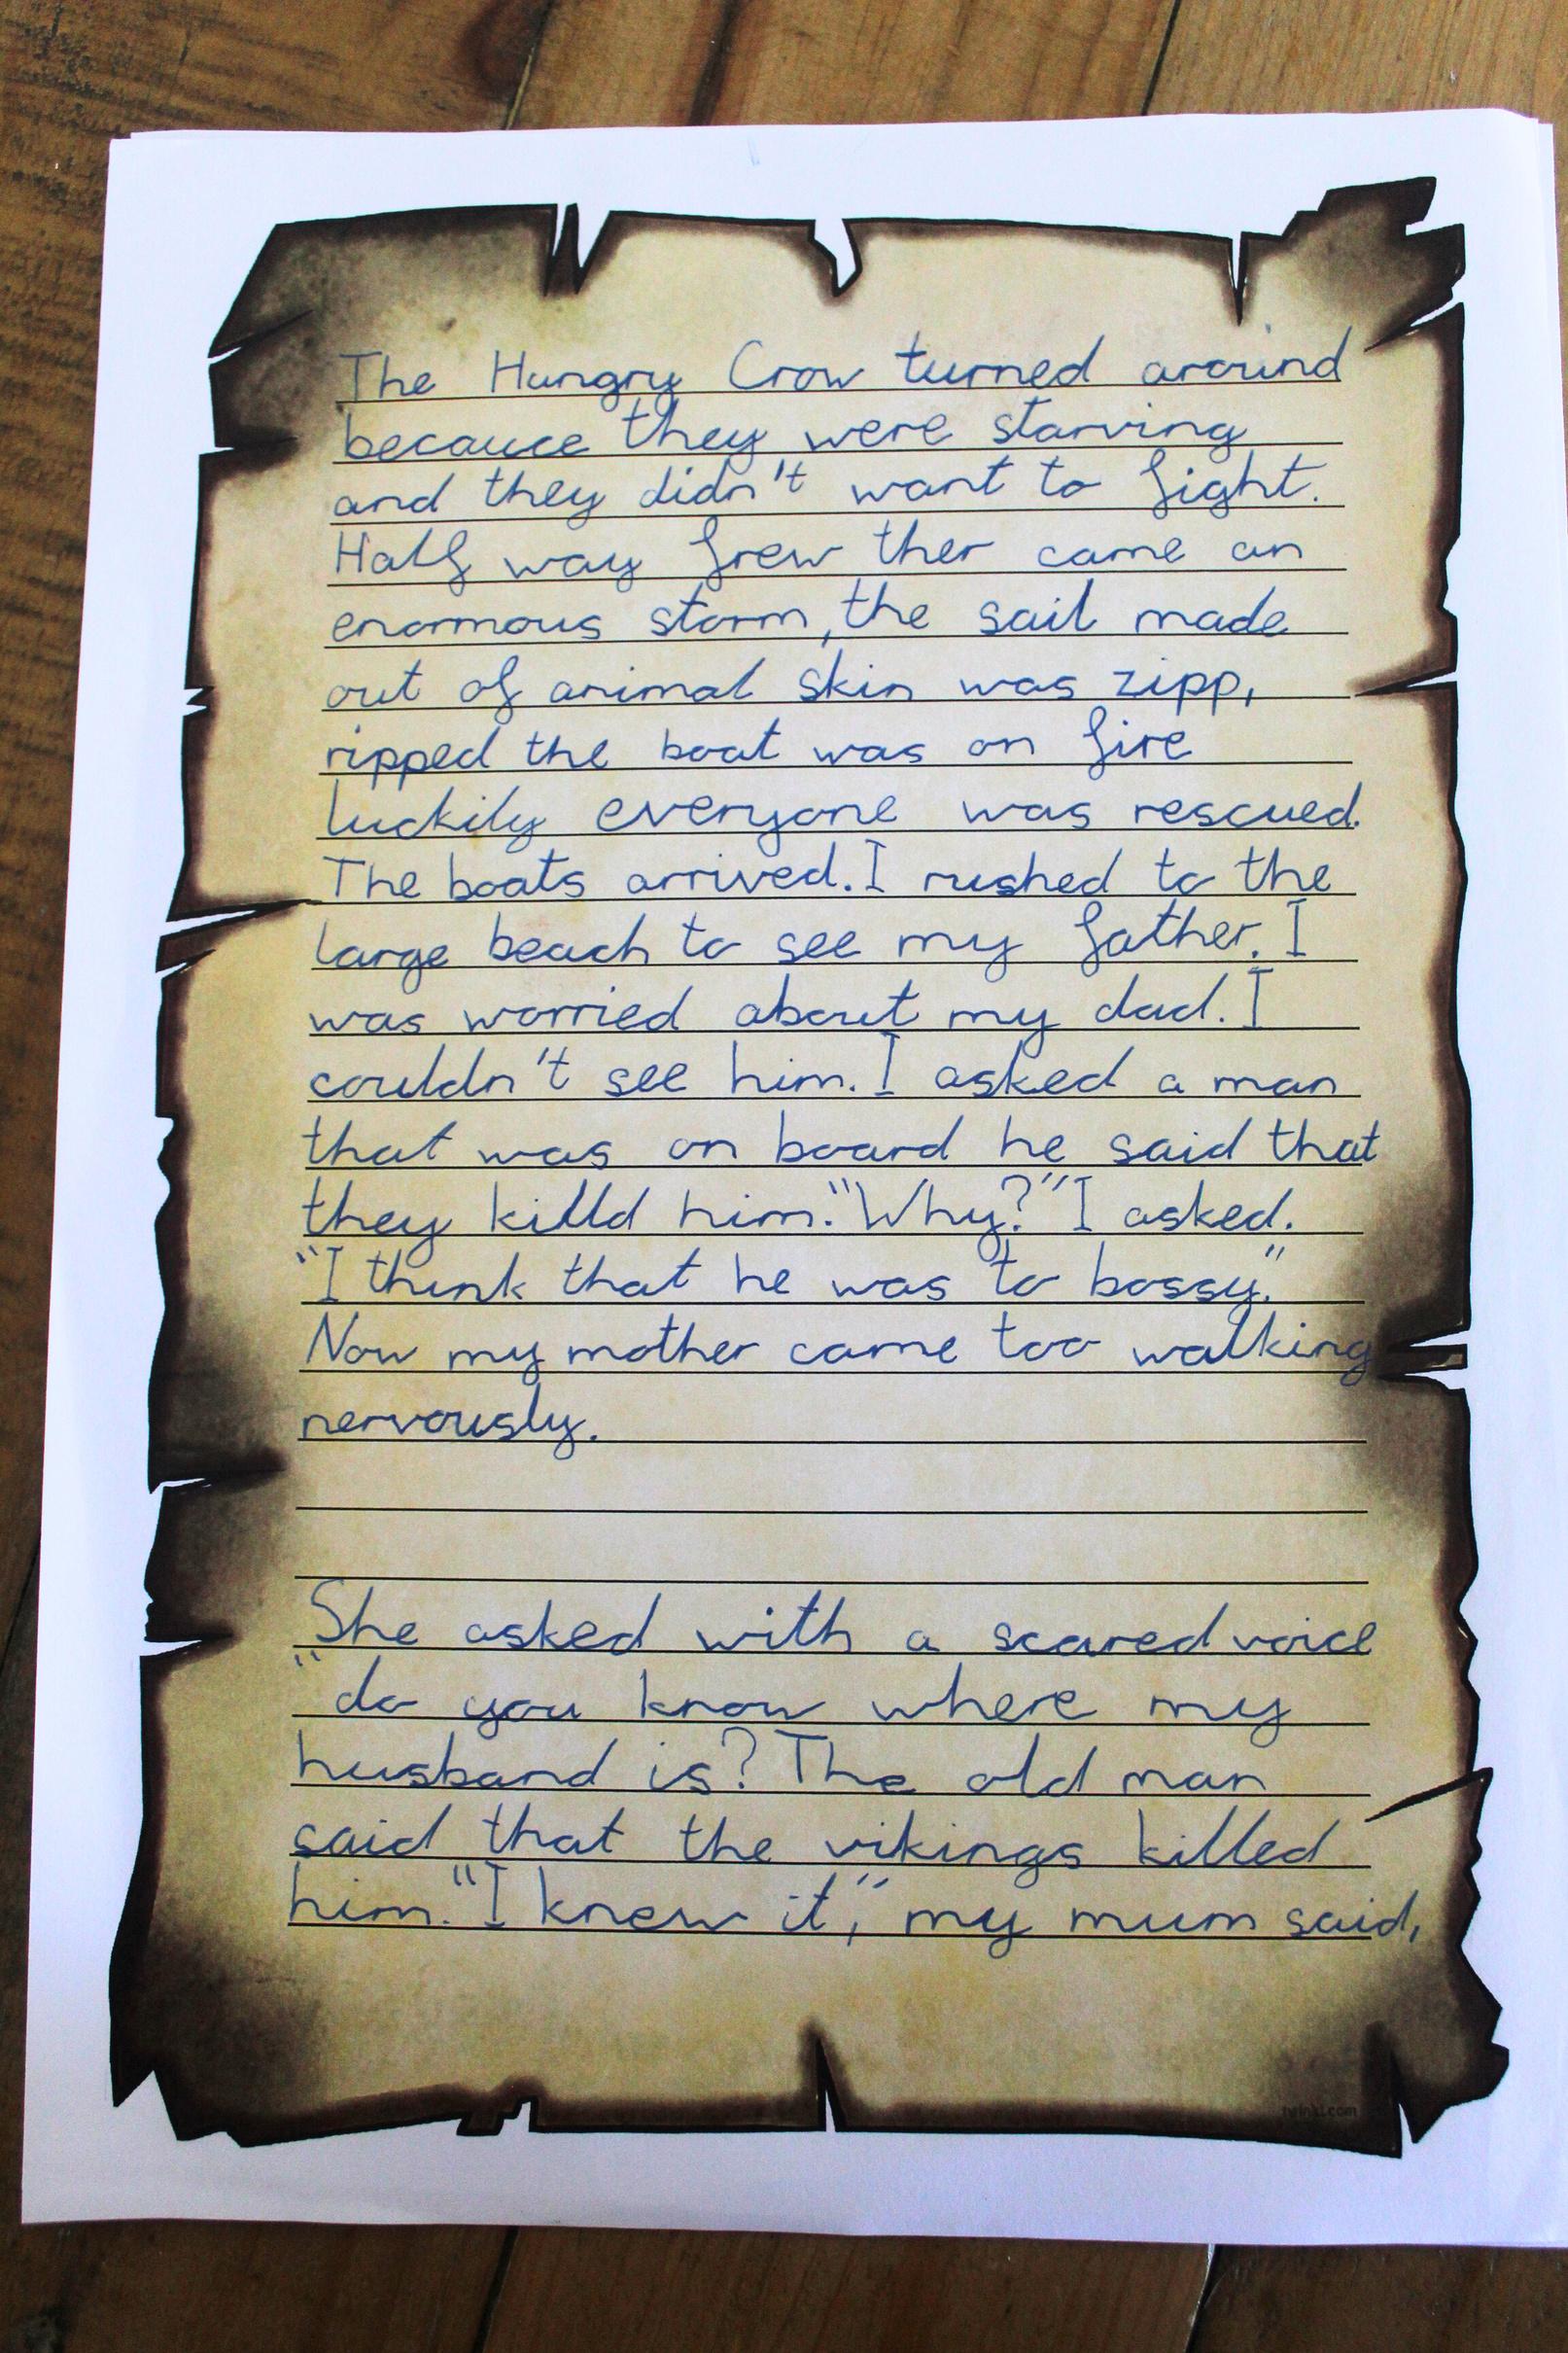 The Hungry Crow turned around
becauce they were starving
and they didn't want to fight.
Half way frew ther came an
enormous storm, the sail made
out of animal skin was zipp,
ripped the boat was on fire
luckily everyone was rescued.
The boats arrived. I rushed to the
large beach to see my father. I
was worried about my dad. I
couldn't see him. I asked a man
that was on board he said that
they killd him. "Why?" I asked.
"I think that he was to bossy."
Now my mother came too walking
nervously.
She asked with a scared voice
"do you know where my
husband is? The old man
said that the vikings killed
him. "I knew it", my mum said,
twinkl.com